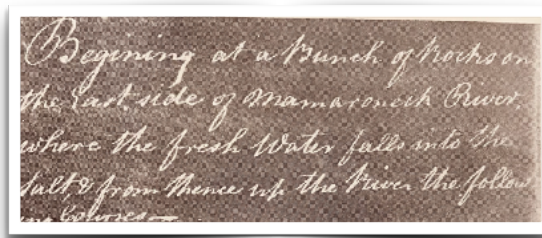 Begining at a Bunch of Rocks on
the East side of Mamaroneck River,
where the fresh Water falls into the
Salt & from thence up the River the follow
ing Courses